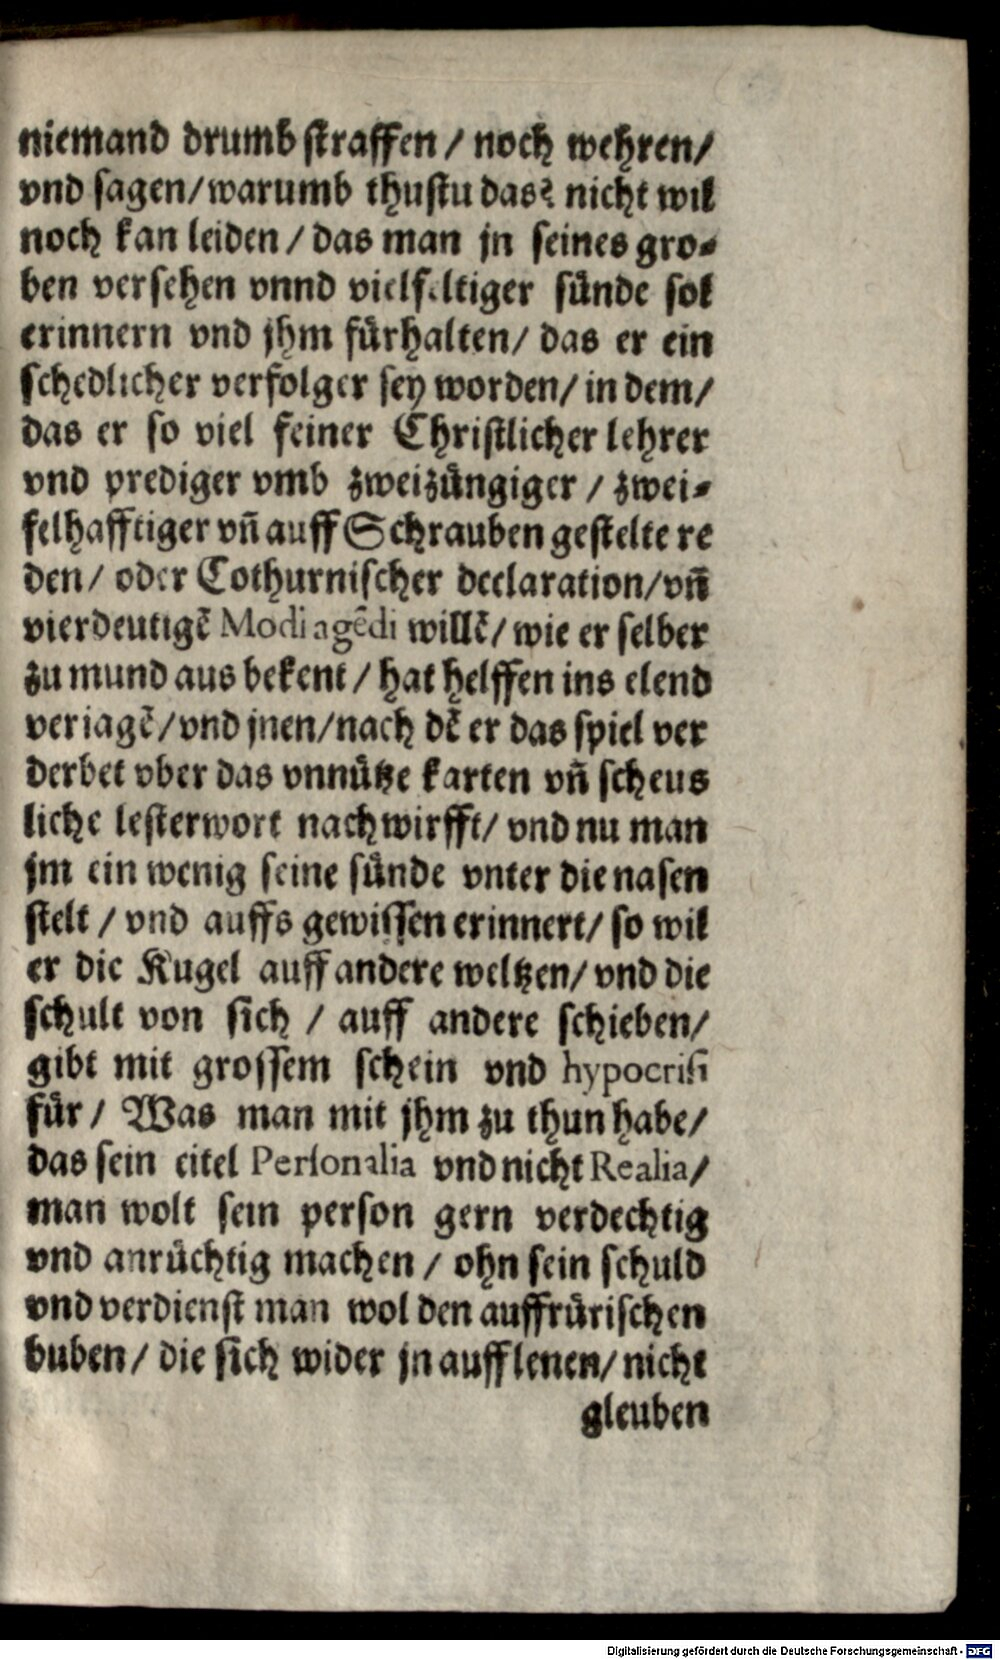 niemand drumb straffen / noch wehren /
vnd sagen / warumb thustu das? nicht wil
noch kan leiden / das man jn seines gro⸗
ben versehen vnnd vielfeltiger sünde sol
erinnern vnd jhm fürhalten / das er ein
schedlicher verfolger sey worden / in dem /
das er so viel feiner Christlicher lehrer
vnd prediger vmb zweizüngiger / zwei⸗
felhafftiger vñ auff Schrauben gestelte re
den / oder Cothurnischer declaration / vñ
vierdeutigẽ Modi agẽdi willẽ / wie er selber
zu mund aus bekent / hat helffen ins elend
veriagẽ / vnd jnen / nach dẽ er das spiel ver
derbet vber das vnnütze karten vñ scheus
liche lesterwort nachwirfft / vnd nu man
jm ein wenig seine sünde vnter die nasen
stelt / vnd auffs gewissen erinnert / so wil
er die Kugel auff andere weltzen / vnd die
schult von sich / auff andere schieben /
gibt mit grossem schein vnd hypocrisi
für / Was man mit jhm zu thun habe /
das sein eitel Personalia vnd nicht Realia /
man wolt sein person gern verdechtig
vnd anrüchtig machen / ohn sein schuld
vnd verdienst man wol den auffrürischen
buben / die sich wider jn aufflenen / nicht
gleuben
Digitalisierung gefördert durch die Deutsche Forschungsgemeinschaft - DFG